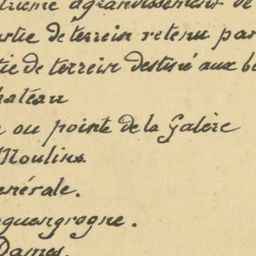 agrandissement de
partie de terrein retenu par
de terrein destiné aux
hateau
ou pointe de la Galère
Moulins
énérale.
Dames.